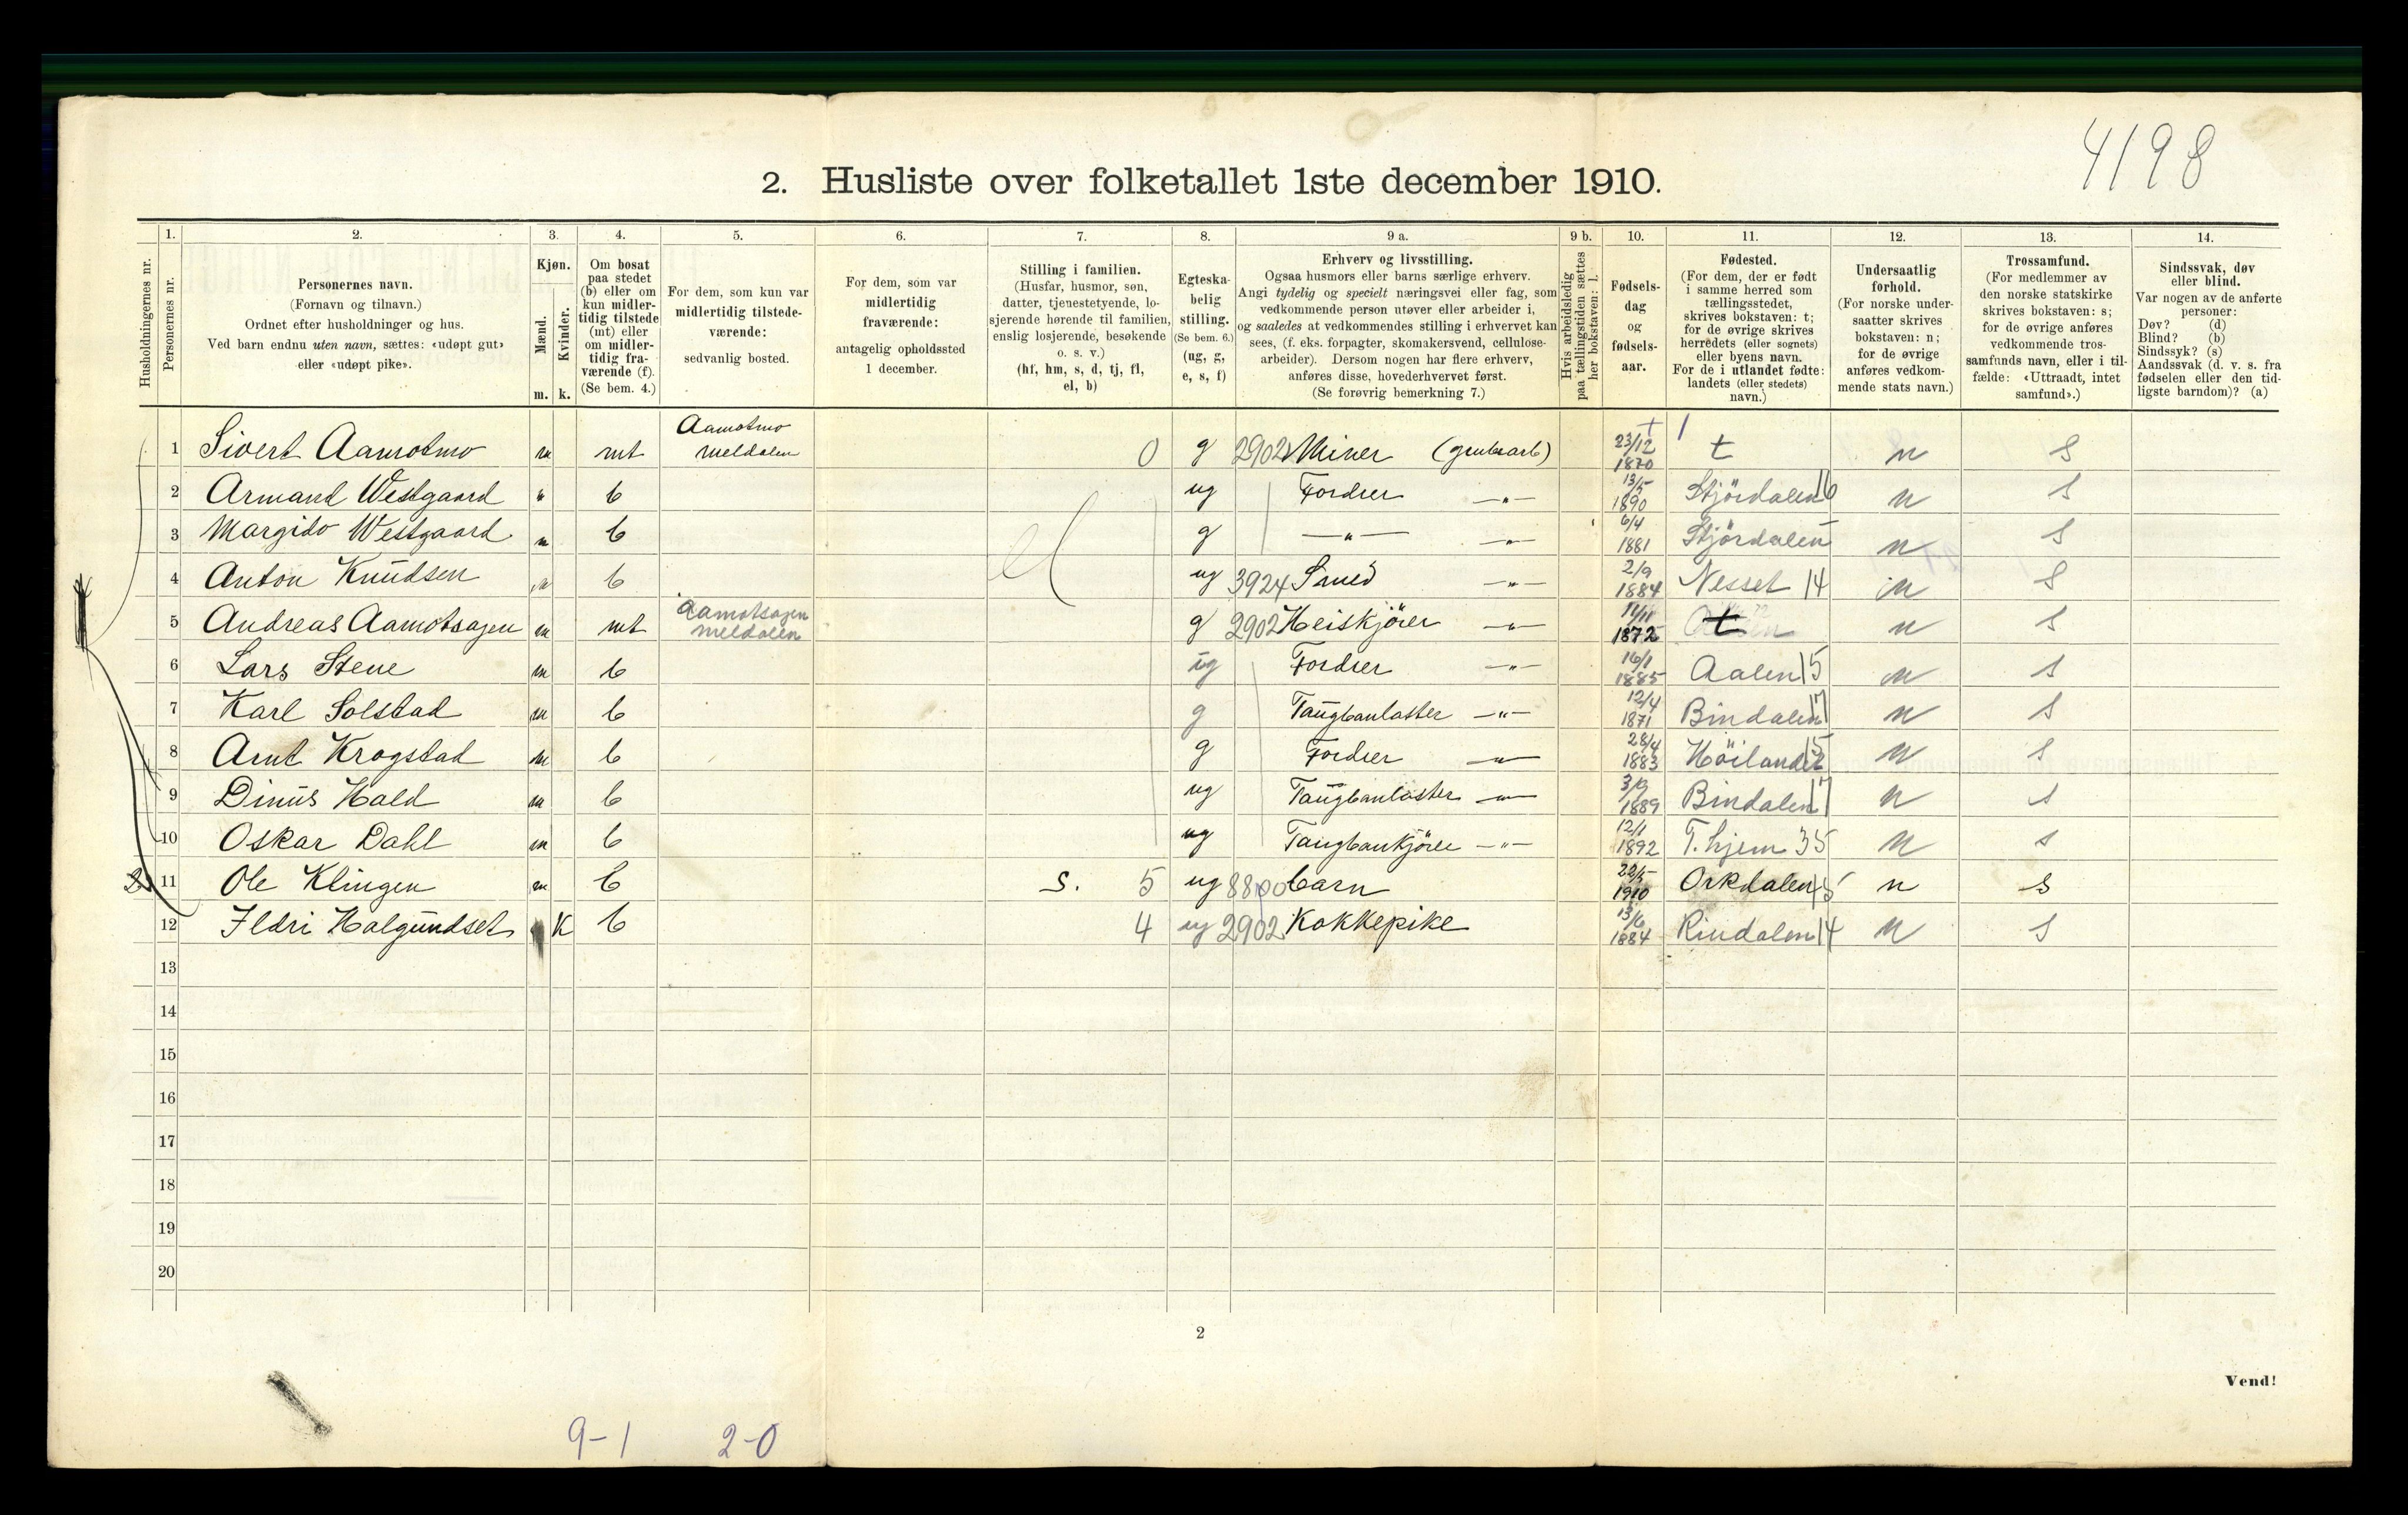 4198
2. Husliste over folketallet 1ste december 1910.
Husholdningernes nr.
1.
Personernes nr.
2.
Personernes navn.
(Fornavn og tilnavn.)
Ordnet efter husholdninger og hus.
Ved barn endnu uten navn, sættes: «udøpt gut»
eller «udøpt pike».
3.
Kjøn.
Mænd.
Kvinder.
m. k.
4.
Om bosat
paa stedet
(b) eller om
kun midler-
tidig tilstede
(mt) eller
om midler-
tidig fra-
værende (f).
(Se bem. 4.)
5.
For dem, som kun var
midlertidig tilstede-
værende:
sedvanlig bosted.
6.
For dem, som var
midlertidig
fraværende:
antagelig opholdssted
1 december.
7.
Stilling i familien.
(Husfar, husmor, søn,
datter, tjenestetyende, lo-
sjerende hørende til familien,
enslig losjerende, besøkende
o. s. v.)
(hf, hm, s, d, tj, fl,
el, b)
8.
Egteska-
belig
stilling.
(Se bem. 6.)
(ug, g,
e, s, f)
9 a.
Erhverv og livsstilling.
Ogsaa husmors eller barns særlige erhverv.
Angi tydelig og specielt næringsvei eller fag, som
vedkommende person utøver eller arbeider i,
og saaledes at vedkommendes stilling i erhvervet kan
sees, (f. eks. forpagter, skomakersvend, cellulose-
arbeider). Dersom nogen har flere erhverv,
anføres disse, hovederhvervet først.
(Se forøvrig bemerkning 7.)
9 b.
Hvis arbeidsledig
paa tællingstiden sættes
her bokstaven: l.
10.
Fødsels-
dag
og
fødsels-
aar.
11.
Fødested.
(For dem, der er født
i samme herred som
tællingsstedet,
skrives bokstaven: t;
for de øvrige skrives
herredets (eller sognets)
eller byens navn.
For de i utlandet fødte:
landets (eller stedets)
navn.)
12.
Undersaatlig
forhold.
(For norske under-
saatter skrives
bokstaven: n;
for de øvrige
anføres vedkom-
mende stats navn.)
13.
Trossamfund.
(For medlemmer av
den norske statskirke
skrives bokstaven: s;
for de øvrige anføres
vedkommende tros-
samfunds navn, eller i til-
fælde: «Uttraadt, intet
samfund».)
14.
Sindssvak, døv
eller blind.
Var nogen av de anførte
personer:
Døv? (d)
Blind? (b)
Sindssyk? (s)
Aandssvak (d. v. s. fra
fødselen eller den tid-
ligste barndom)? (a)
1 Sivert Aamotmo m mt Aamotmo meldalen 0 g 2902 Miner (grubearb) 23/12 1870 t n S
2 Armand Westgaard " b ug Fordrer —"— 13/5 1890 Stjördalen 16 n S
3 Margido Westgaard m b el g —"— —"— 6/4 1881 Stjördalen n S
4 Anton Knudsen m b ug 3924 Smed —"— 2/9 1884 Nesset 14 n S
5 Andreas Aamotsagen m mt Aamotsagen meldalen g 2902 Heiskjörer —"— 11/11 1872 t n S
6 Lars Stene m b ug Fordrer —"— 16/1 1885 Aalen 15 n S
7 Karl Solstad m b g Taugbanlaster —"— 12/4 1871 Bindalen 17 n S
8 Arnt Krogstad m b g Fordrer —"— 28/4 1883 Höilandet 15 n S
9 Dinus Hald m b ug Taugbanlaster —"— 3/9 1889 Bindalen 17 n s
10 Oskar Dahl m b ug Taugbankjörer —"— 12/1 1892 T.hjem 35 n s
2 11 Ole Klingen m b s. 5 ug 8800 barn 22/5 1910 Orkdalen 15 n s
12 Ildri Halgundset K b 4 ug 2902 Kokkepike 13/6 1884 Rindalen 14 n S
13
14
15
16
17
18
19
20
2
Vend!
9-1 2-0